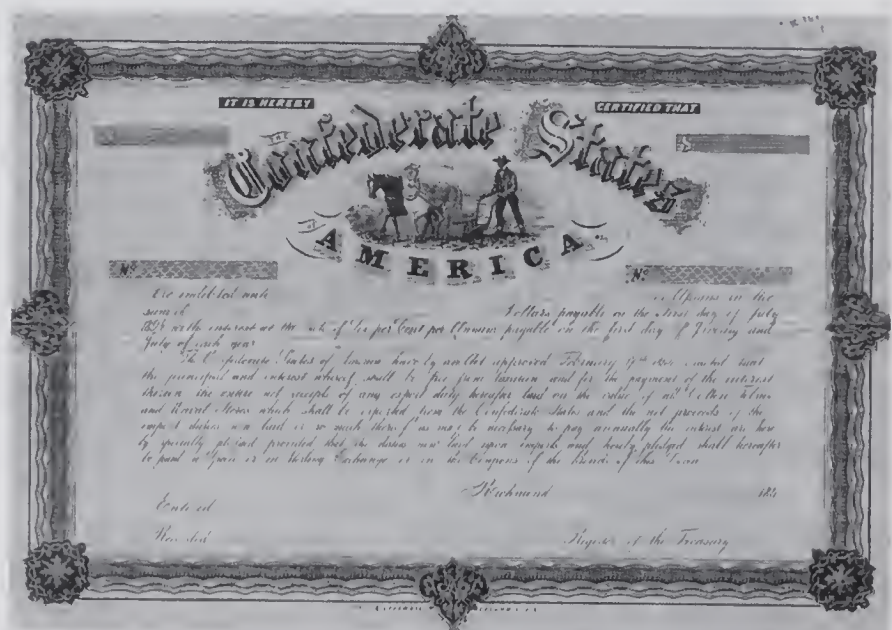 IT IS HEREBY CERTIFIED THAT
THE
Confederate States
OF
AMERICA
$ $
No. No.
are indebted unto or Assigns in the
sum of Dollars payable on the first day of July
1894 with interest at the rate of Six per Cent per Annum payable on the first day of January and
July of each year
The Confederate States of America have by an Act approved February 17th 1864 enacted that
the principal and interest whereof shall be free from taxation and for the payment of the interest
thereon the entire net receipts of any export duty hereafter laid on the value of all Cotton Tobacco
and Naval Stores which shall be exported from the Confederate States and the net proceeds of the
import duties now laid or so much thereof as may be necessary to pay annually the interest are here
by specially pledged provided that the duties now laid upon imports and hereby pledged shall hereafter
be paid in Specie or in Sterling Exchange or in the Coupons of the bonds of this Loan
Richmond 186
Entered
Recorded Register of the Treasury